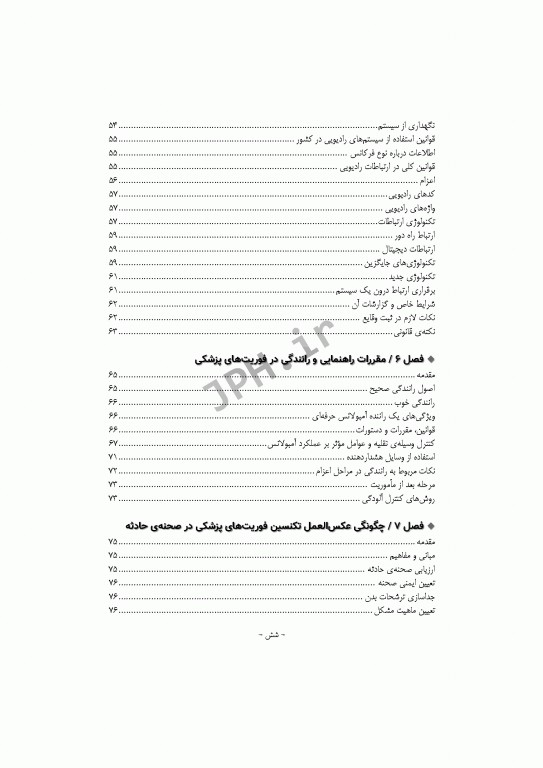 نگهداری از سیستم ۵۴
قوانین استفاده از سیستم‌های رادیویی در کشور ۵۵
اطلاعات درباره نوع فرکانس ۵۵
قوانین کلی در ارتباطات رادیویی ۵۵
اعزام ۵۶
کدهای رادیویی ۵۷
واژه‌های رادیویی ۵۷
تکنولوژی ارتباطات ۵۷
ارتباط راه دور ۵۹
ارتباطات دیجیتال ۵۹
تکنولوژی‌های جایگزین ۵۹
تکنولوژی جدید ۶۱
برقراری ارتباط درون یک سیستم ۶۱
شرایط خاص و گزارشات آن ۶۲
نکات لازم در ثبت وقایع ۶۲
نکته‌ی قانونی ۶۳
◆ فصل ۶ / مقررات راهنمایی و رانندگی در فوریت‌های پزشکی
مقدمه ۶۵
اصول رانندگی صحیح ۶۵
رانندگی خوب ۶۶
ویژگی‌های یک راننده آمبولانس حرفه‌ای ۶۶
قوانین، مقررات و دستورات ۶۶
کنترل وسیله‌ی نقلیه و عوامل مؤثر بر عملکرد آمبولانس ۶۷
استفاده از وسایل هشداردهنده ۷۱
نکات مربوط به رانندگی در مراحل اعزام ۷۲
مرحله بعد از مأموریت ۷۳
روش‌های کنترل آلودگی ۷۳
◆ فصل ۷ / چگونگی عکس‌العمل تکنسین فوریت‌های پزشکی در صحنه‌ی حادثه
مقدمه ۷۵
مبانی و مفاهیم ۷۵
ارزیابی صحنه‌ی حادثه ۷۵
تعیین ایمنی صحنه ۷۶
جداسازی ترشحات بدن ۷۶
تعیین ماهیت مشکل ۷۶
~ شش ~
JPH.ir